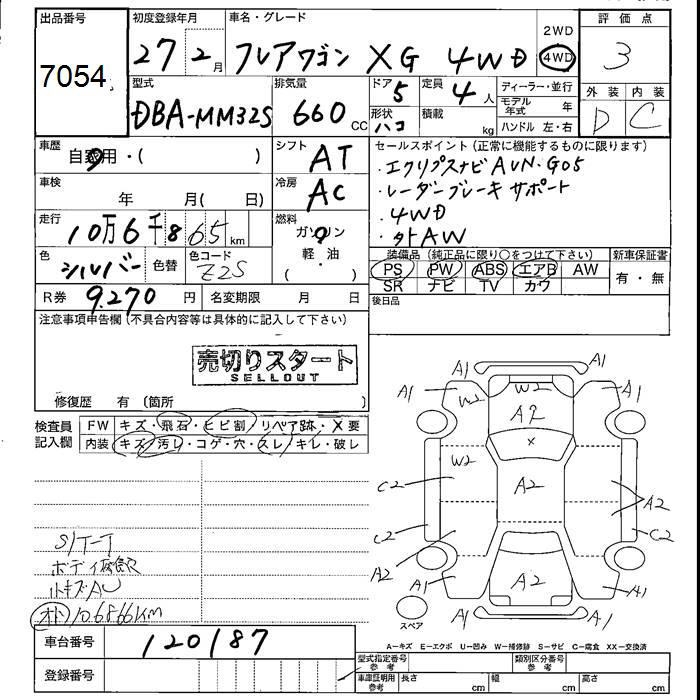 出品番号 初度登録年月 車名・グレード 評価点
7054 27 2月 フレアワゴン XG 4WD 2WD 4WD 3
型式 排気量 ドア 5 定員 4人 ディーラー・並行 外装 内装
DBA-MM32S 660 CC 形状 ハコ 積載 kg モデル年式 年 D C
ハンドル 左・右
車歴 自家用・( ) シフト AT セールスポイント(正常に機能するものに限ります)
・エクリプスナビ AVN・G05
車検 年 月( 日) 冷房 AC ・レーダーブレーキサポート
・4WD
走行 10万6千865km 燃料 ガソリン 軽・油 ( ) ・外AW
色 シルバー 色替 色コード Z2S 装備品(純正品に限り○をつけて下さい) 新車保証書
PS PW ABS エアB AW 有・無
SR ナビ TV カワ
R券 9,270 円 名変期限 月 日 後日品
注意事項申告欄(不具合内容等は具体的に記入して下さい)
売切りスタート
SELLOUT
修復歴 有 (箇所
検査員記入欄 FW キズ・飛石・ヒビ割 リペア跡・X要
内装 キズ・汚レ・コゲ・穴・スレ・キレ・破レ
A1 A1
A1 W2 W2 A1
A2
W2 A2 A2
C2 C2
C2
A2 A2
A1 A1
A1 A1
スペア
S/T-T
ボディ腐食
小キズAU
オド 106866KM
車台番号 120187
A-キズ E-エクボ U-凹み W-補修跡 S-サビ C-腐食 XX-交換済
型式指定番号 参考 類別区分番号 参考
登録番号 車庫証明用 参考 長さ cm 幅 cm 高さ cm